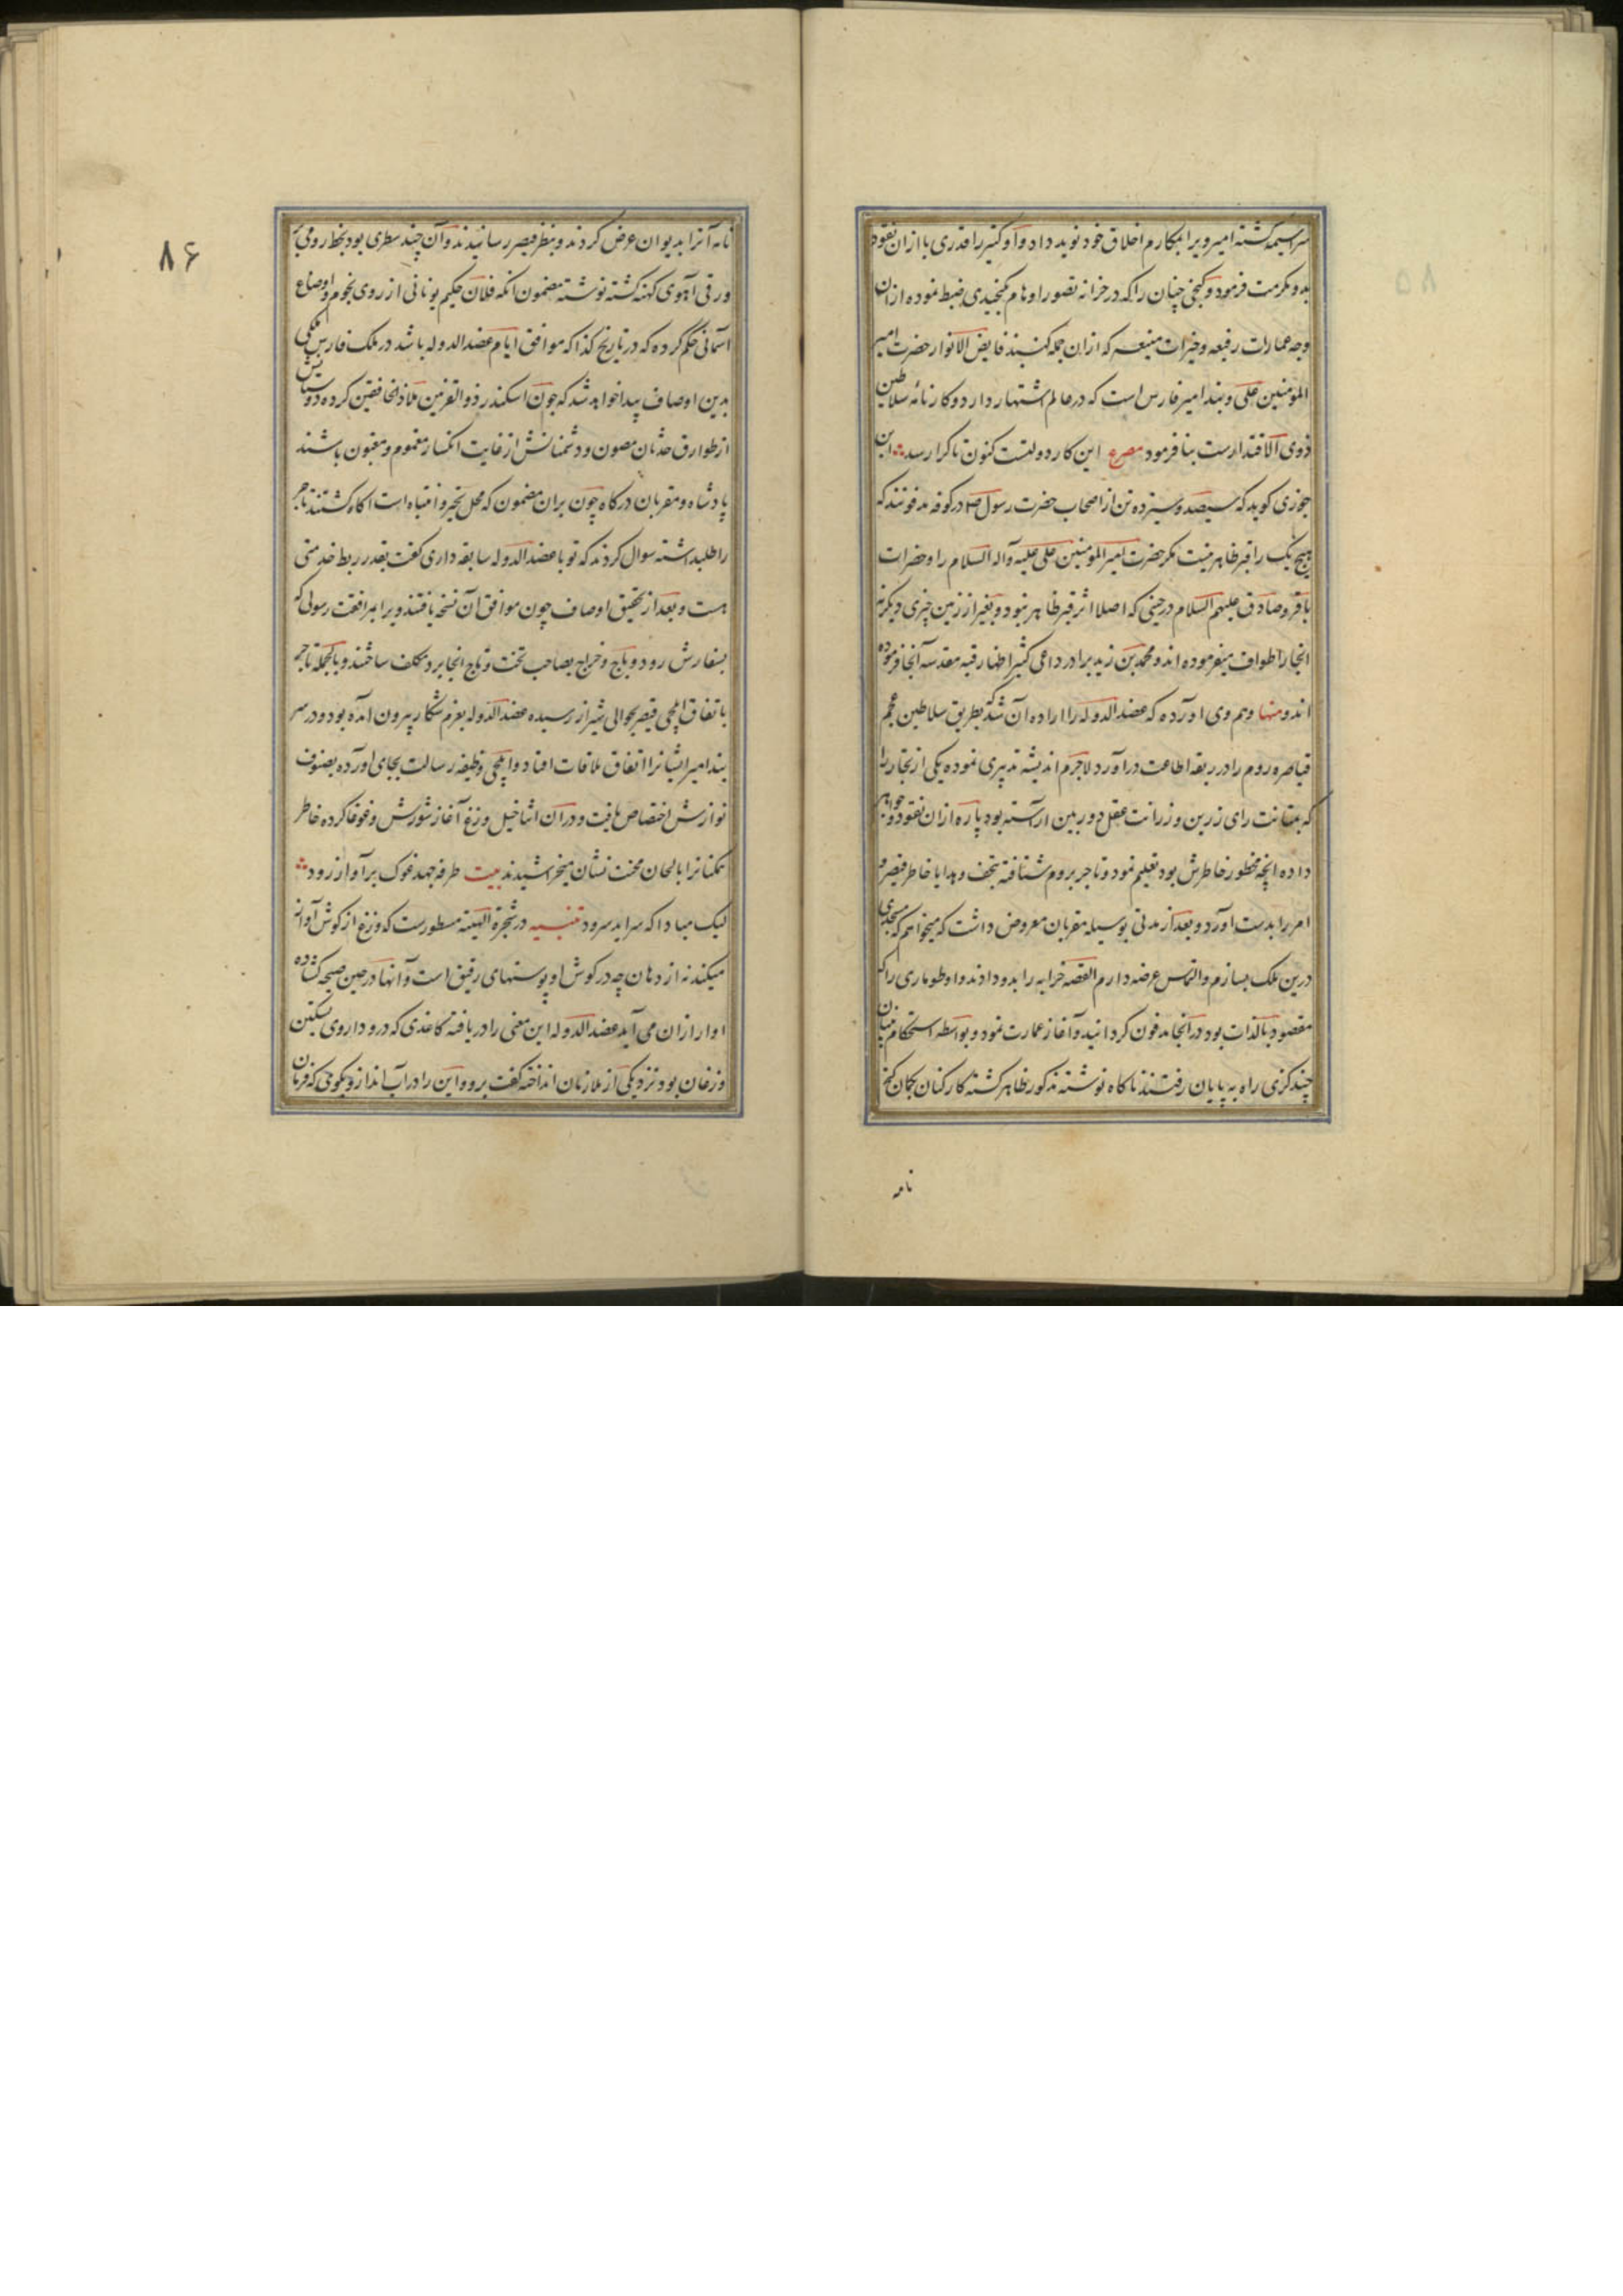 سراسیمه گشته امیر ویرا بمکارم اخلاق خود نوید داد و او کتیر را قدری با ازان نقود
بدو مکرمت فرمود و کنجی چنان را که در خزانه تصور اوهام نکنجیدی ضبط نموده ازان
وجه عمارات رفیعه وخیرات منیعه که ازان جمله کنبند فایض الانوار حضرت امیر
المومنین علی وبند امیر فارس است که در عالم اشتهار دارد و کارنامه سلاطین
ذوی الاقتدارست بنا فرمود مصرع این کار دولتست کنون تا کرا رسد ابن
جوزی کوید که سیصد وسیزده تن از اصحاب حضرت رسول صلم در کوفه مدفونند که
هیچ یک را قبر ظاهر نیست مکر حضرت امیر المومنین علی علیه وآله السلام را وحضرات
باقر وصادق علیهم السلام در حینی که اصلا اثر قبر ظاهر نبود و بغیر از زمین چیزی دیگر نه
انجا را طواف میفرموده اند و محمد بن زید برادر داعی کثیر اظهار رقبه مقدسه آنجا فرموده
اند ومنها وهم وی آورده که عضد الدوله را اراده آن شد که بطریق سلاطین عجم
قیاصره روم را در ربقه اطاعت در آورد لاجرم اندیشه تدبیری نموده یکی از تجار را
که بمتانت رای زرین و رزانت عقل دوربین آراسته بود پاره ازان نقود وجواهر
داده انچه مخطور خاطرش بود تعلیم نمود و تاجر بروم شتافته بتحف و هدایا خاطر قیصر و
امرا را بدست آورد و بعد از مدتی بوسیله مقربان معروض داشت که میخواهم که مسجدی
درین ملک بسازم و التماس عرضه دارم القصه خرابه را بدو دادند و او طوماری را که
مقصود بالذات بود در انجا مدفون کردانید و آغاز عمارت نمود و بواسطه استحکام بنیان
چند کزی راه به پایان رفتند ناکاه نوشته مذکور ظاهر کشته کارکنان بکمان کنج
نامه
۸۶
نامه آنرا بدیوان عرض کردند و بنظر قیصر رسانیدند و آن چند سطری بود بخط رومی بر
ورقی آهوی کهنه کشته نوشته مضمون انکه فلان حکیم یونانی از روی نجوم و اوضاع
آسمانی حکم کرده که در تاریخ کذا که موافق ایام عضد الدوله باشد در ملک فارس ملکی
بدین اوصاف پیدا خواهد شد که چون اسکندر ذو القرنین ملاذ خافقین کرده دوستانش
از طوارق حدثان مصون و دشمنانش از غایت انکسار مغموم و مغبون باشند
پادشاه و مقربان درکاه چون بران مضمون که محل تحیر و انتباه است آکاه کشتند تاجر
را طلبداشته سوال کردند که تو با عضد الدوله سابقه داری کفت بقدر ربط خدمتی
هست و بعد از تحقیق اوصاف چون موافق آن نسخه یافتند ویرا بمرافقت رسولی که
بسفارش رود و باج و خراج بصاحب تخت و تاج انجا برد مکلف ساختند و بالجمله تاجر
باتفاق ایلچی قیصر بحوالی شیراز رسیده عضد الدوله بعزم شکار بیرون آمده بود و در سر
بند امیر ایشانرا اتفاق ملاقات افتاد و ایلچی وظیفه رسالت بجای آورده بصنوف
نوازش اختصاص یافت و دران اثنا خیل وزغ آغاز شورش و غوغا کرده خاطر
همکنانرا بالحان محنت نشان میخراشیدند بیت طرفه جهد غوک برآواز رود
لیک مبادا که سراید سرود تنبیه در شجرة الهیه مسطورست که وزغ از کوش آواز
میکند نه از دهان چه در کوش او پوستهای رقیق است و آنها در حین صیحه کشاده
اواز ازان می آید عضد الدوله این معنی را دریافته کاغذی که درو داروی تسکین
وزغان بود نزد یکی از ملازمان انداخته کفت برو و این را در آب انداز و بکوی که فرمان